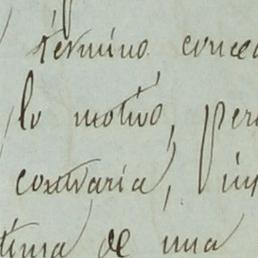 término, conced
lo motivó, per
contraria, in
tima de una